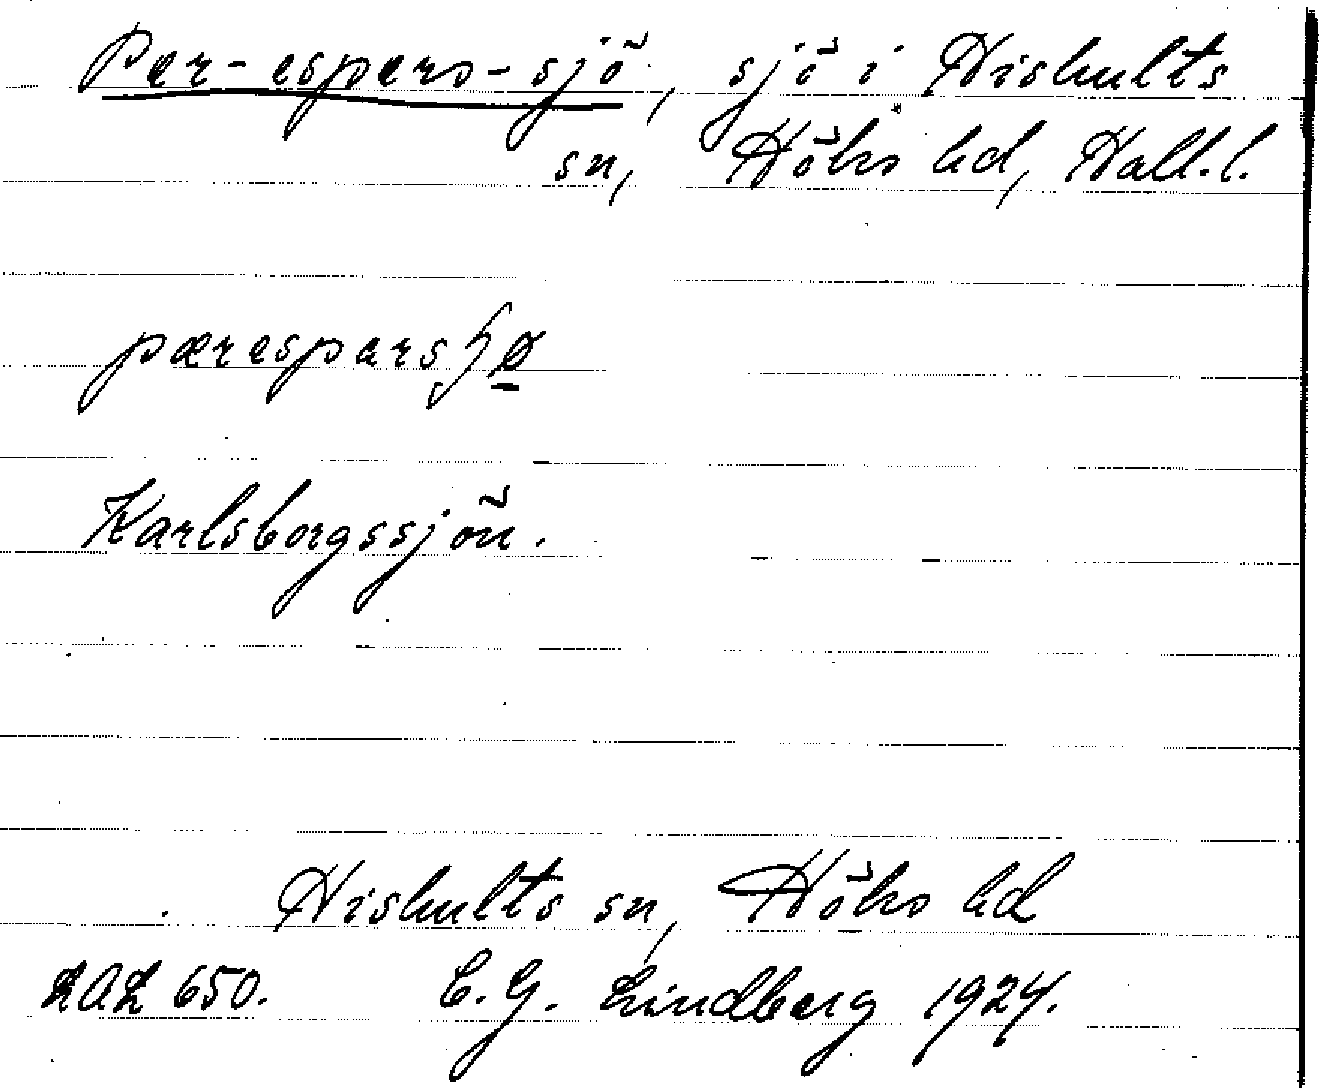 Per-espers-sjö, sjö i Hishults
sn, Höks hd, Hall.l.
pærespærsʃø̲
Karlsborgssjön.
Hishults sn, Höks hd
LAL 650. C.G. Lindberg 1924.